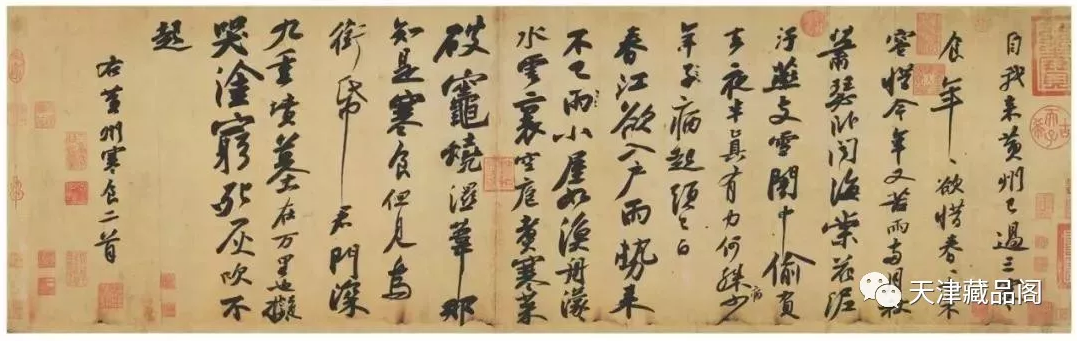 自我来黃州已過三寒
食年〻欲惜春〻去不
容惜今年又苦雨兩月秋
蕭瑟卧聞海棠花泥
汙燕支雪闇中偷負
去夜半真有力何殊病少
年子病起頭已白
春江欲入戶雨勢來
不已雨小屋如漁舟濛〻
水雲裏空庖煮寒菜
破竈燒濕葦那
知是寒食但見烏
銜帋君門深
九重墳墓在万里也擬
哭塗窮死灰吹不
起
右黃州寒食二首
天津藏品阁